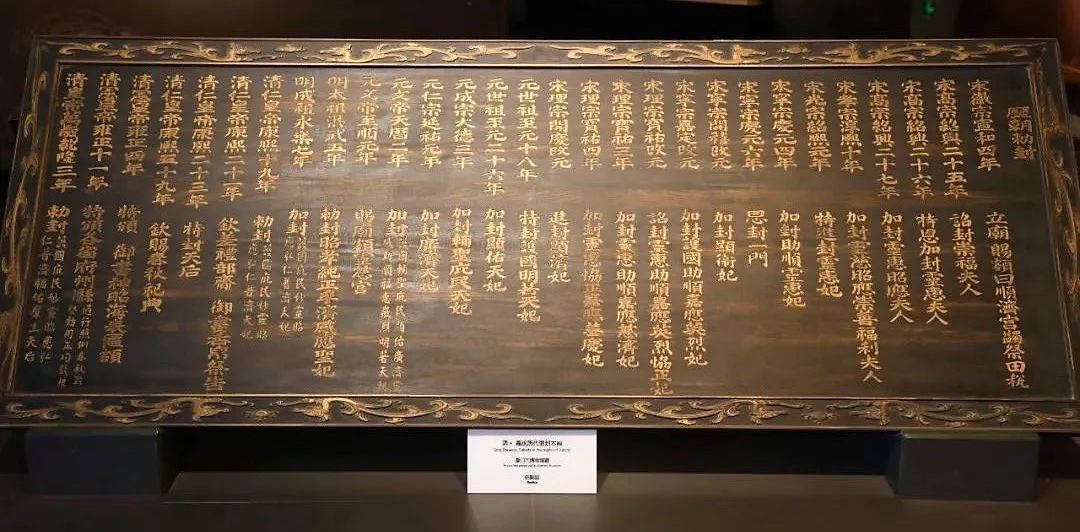 歷朝勅封
宋徽宗宣和四年 立廟賜額司順濟宮蠲祭田稅
宋高宗紹興二十五年 誥封崇福夫人
宋高宗紹興二十六年 特恩加封靈惠夫人
宋高宗紹興二十七年 加封靈惠昭應夫人
宋孝宗淳熙十年 加封靈慈昭應崇善福利夫人
宋光宗紹熙元年 特進封靈惠妃
宋寧宗慶元四年 加封助順靈惠妃
宋寧宗慶元六年 思封一門
宋寧宗開禧改元 加封顯衛妃
宋寧宗嘉定改元 加封護國助順嘉應英烈妃
宋理宗寶祐改元 誥封靈惠助順嘉應英烈協正妃
宋理宗寶祐二年 加封靈惠助順嘉應慈濟妃
宋理宗寶祐四年 加封靈惠協正嘉應善慶妃
宋理宗開慶改元 進封顯濟妃
元世祖至元十八年 特封護國明著天妃
元世祖至元二十六年 加封顯佑天妃
元成宗大德三年 加封輔聖庇民天妃
元仁宗延祐元年 加封廣濟天妃
元文帝天曆二年 加封
元文帝至順元年 賜廟額靈慈宮
明太祖洪武五年 勅封昭孝純正孚濟感應聖妃
明成祖永樂七年 加封護國庇民妙靈昭應弘仁普濟天妃
清仁皇帝康熙十九年 勅封護國庇民妙靈昭應弘仁普濟天妃
清仁皇帝康熙二十二年 欽差禮部齎御書香帛祭告
清仁皇帝康熙二十三年 特封天后
清仁皇帝康熙五十九年 欽賜春秋祀典
清憲帝雍正四年 特頒御書神昭海表匾額
清憲皇帝雍正十一年 特頒
清皇帝萬歲乾隆三年 勅封護國庇民妙靈昭應弘仁普濟福佑群生天后